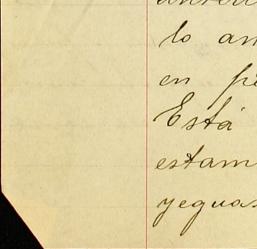 lo an
en pe
Está
estam
yeguas